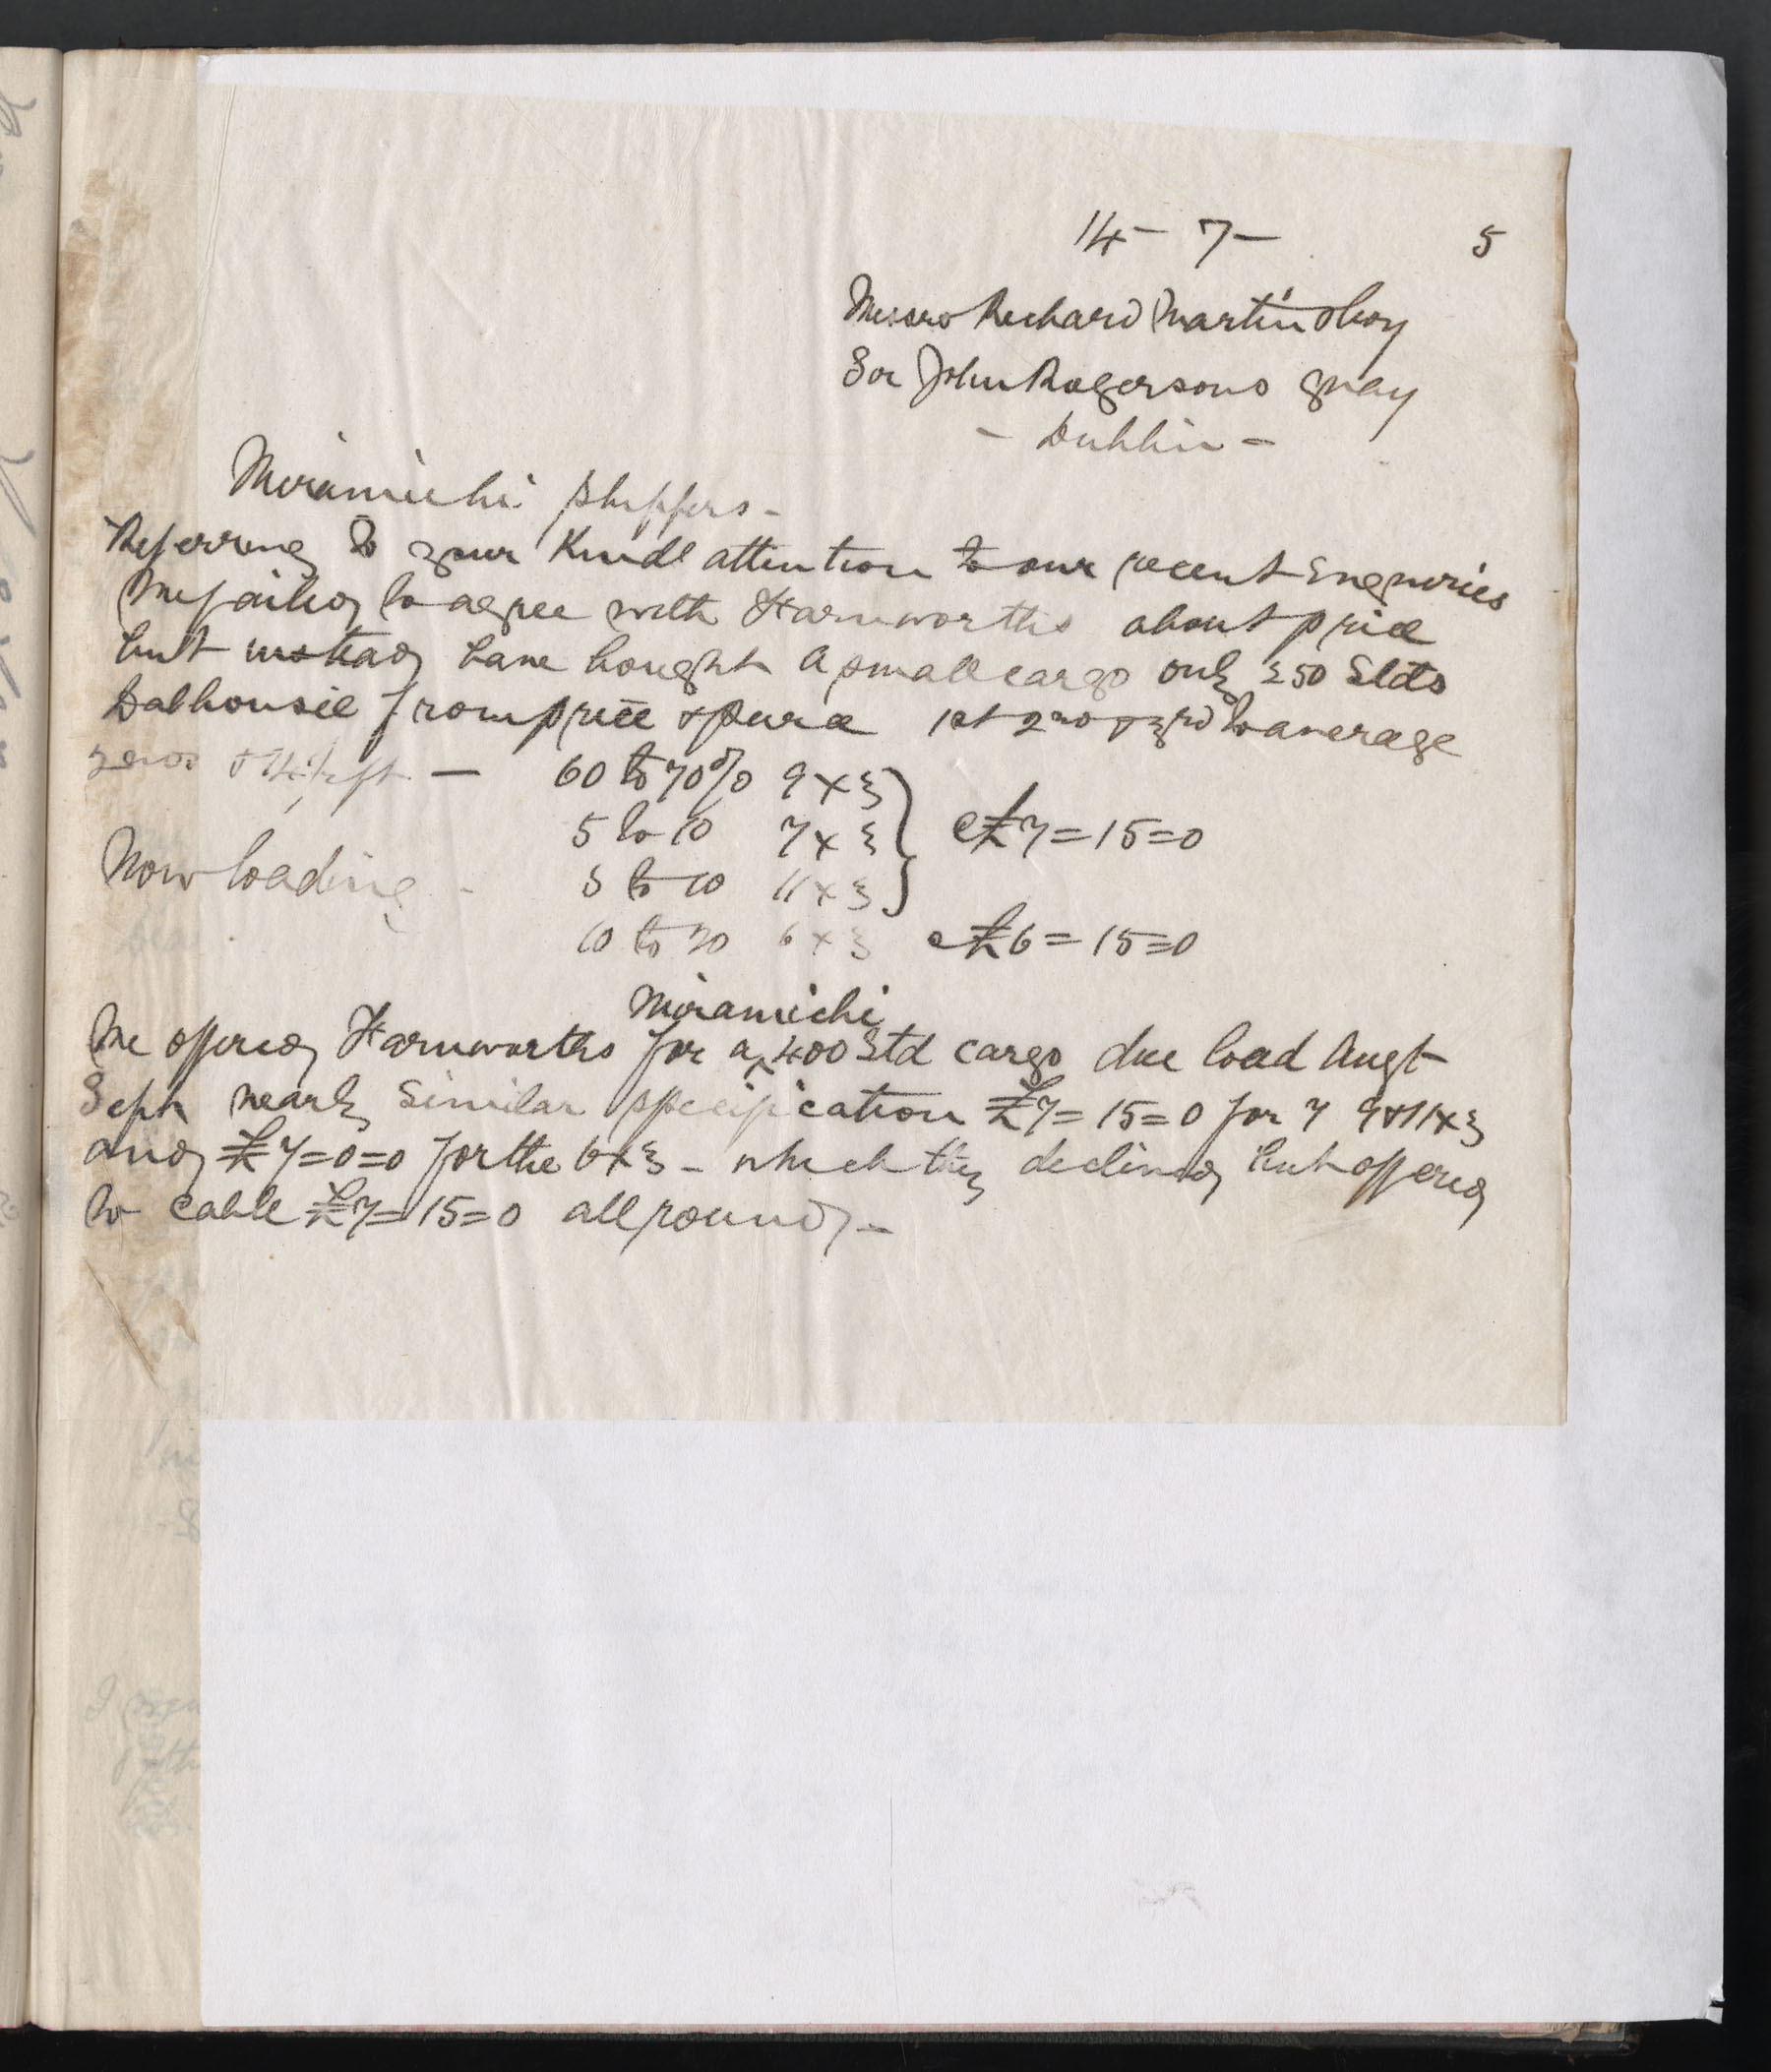 14 - 7 - 5
Messrs Richard Martin & Coy
Sir John Rogersons Quay
- Dublin -
Miramichi Shippers -
Referring to your kind attention to our recent Enquiries
We failed to agree with Harnworths about price
but instead have bought a small cargo only 250 Stds
Dalhousie from price & 1st 2nd & 3rd to average
& 14½ ft - 60 to 70% 9 x 3
5 to 10 7 x 3 @ £7=15=0
Now loading - 5 to 10 11 x 3
10 to 20 6 x 3 @ £6=15=0
Miramichi
We offered Harnworths for a 400 Std cargo due load Augt
Sept nearly similar specification £7=15=0 for 7 9 & 11 x 3
and £7=0=0 for the 6 x 3 - which they declined but offered
to cable £7=15=0 all round -